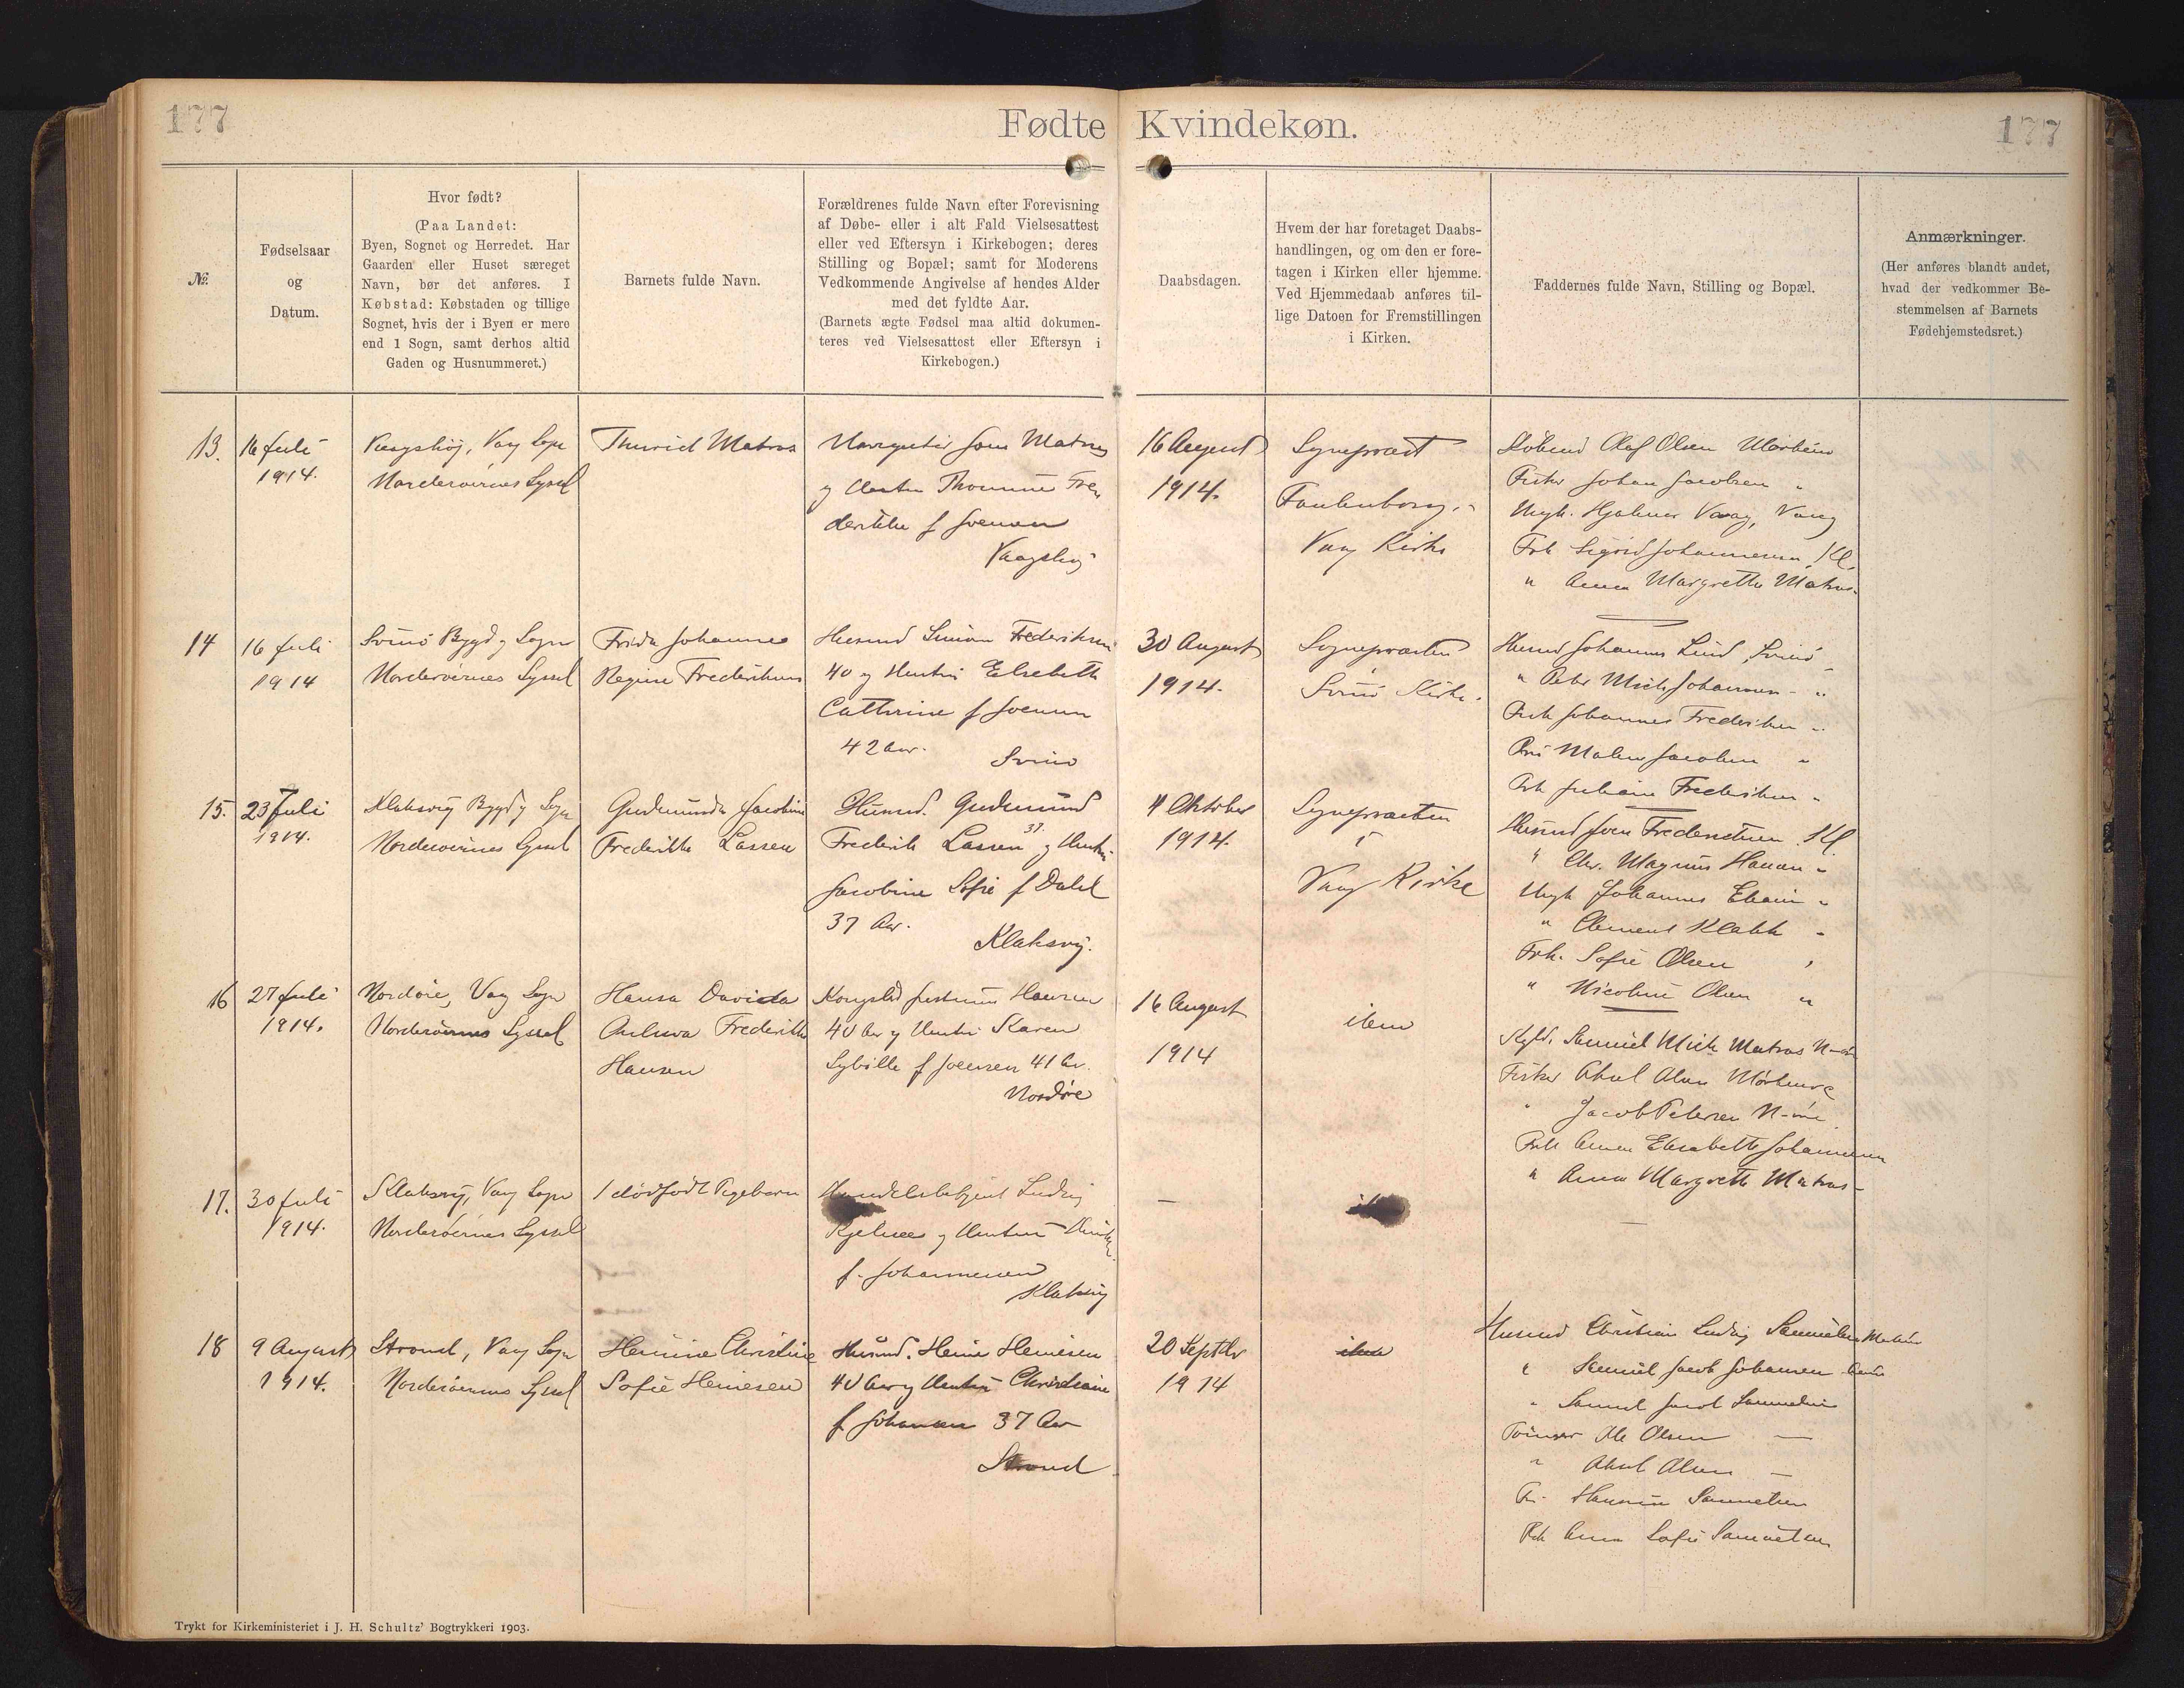 177
Fødte Kvindekøn.
177
№
Fødselsaar
og
Datum.
Hvor født?
(Paa Landet:
Byen, Sognet og Herredet. Har
Gaarden eller Huset særeget
Navn, bør det anføres. I
Købstad: Købstaden og tillige
Sognet, hvis der i Byen er mere
end 1 Sogn, samt derhos altid
Gaden og Husnummeret.)
Barnets fulde Navn.
Forældrenes fulde Navn efter Forevisning
af Døbe- eller i alt Fald Vielsesattest
eller ved Eftersyn i Kirkebogen; deres
Stilling og Bopæl; samt for Moderens
Vedkommende Angivelse af hendes Alder
med det fyldte Aar.
(Barnets ægte Fødsel maa altid dokumen-
teres ved Vielsesattest eller Eftersyn i
Kirkebogen.)
Daabsdagen.
Hvem der har foretaget Daabs-
handlingen, og om den er fore-
tagen i Kirken eller hjemme.
Ved Hjemmedaab anføres til-
lige Datoen for Fremstillingen
i Kirken.
Faddernes fulde Navn, Stilling og Bopæl.
Anmærkninger.
(Her anføres blandt andet,
hvad der vedkommer Be-
stemmelsen af Barnets
Fødehjemstedsret.)
13.
16 Juli
1914.
Vaag Sogn
Norderøernes Syssel
Thurid Matras
Matras
og Hustru Thomine Fre-
derikke f Joensen
16 August
1914.
Sognepræst
Vaag Kirke
Olaf Olsen
Fisker Johan Jacobsen "
Ungk. Hjalmar Vaag, Vaag
Frk Sigrid Johannesen, Kl.
" Anna Margrethe Matras
14
16 Juli
1914
Svinø Bygd og Sogn
Norderøernes Syssel
Frida Johanne
Regine Frederiksen
Husmd Simon Frederiksen
40 og Hustru Elsebeth
Cathrine f Joensen
42 Aar.
Svinø
30 August
1914.
Sognepræsten
Svinø Kirke.
Husmd Johannes Lind, Svinø
" Peter Mich Johannesen - "
Johannes Frederiksen "
Malene Jacobsen "
Frk Juliane Frederiksen "
15.
23 Juli
1914.
Klaksvig Bygd og Sogn
Norderøernes Syssel
Gudmunda Jacobine
Frederikke Lassen
Husmd. Gudmund
Frederik Lassen 37. og Hustru
Jacobine Sofie f Dahl
37 Aar.
Klaksvig.
4 Oktober
1914.
Sognepræsten
i
Vaag Kirke
Husmd Joen Frederiksen Kl
" Chr. Magnus Hansen "
Ungk Johannes "
" Clement Klakk "
Frk. Sofie Olsen "
" Nicoline Olsen "
16
27 Juli
1914.
Nordøre, Vaag Sogn
Norderøernes Syssel
Hansa Davida
Frederikke
Hansen
Hansen
40 Aar og Hustru Karen
Sybille f Joensen 41 Aar.
Nordøre
16 August
1914
idem
Samuel Mich Matras
Fisker Olsen
" Jacob Petersen
Frk Anna Elsebeth Johannesen
" Anna Margrethe Matras
17.
30 Juli
1914.
Klaksvig, Vaag Sogn
Norderøernes Syssel
1 dødfødt Pigebarn
Handelsbetjent Ludvig
og Hustru
f. Johannesen
Klaksvig
—
—
18
9 August
1914.
Strond, Vaag Sogn
Norderøernes Syssel
Heinine Christine
Sofie Heinesen
Husmd. Heine Heinesen
40 Aar og Hustru Christiane
f Johansen 37 Aar
Strond
20 Septbr
1914
idem
Husmd Christian Ludvig Samuelsen
" Samuel Jacob Johansen
" Samuel Jacob Samuelsen
Ole Olsen —
" Olsen —
Samuelsen
Frk Anna Sofie Samuelsen
Trykt for Kirkeministeriet i J. H. Schultz' Bogtrykkeri 1903.